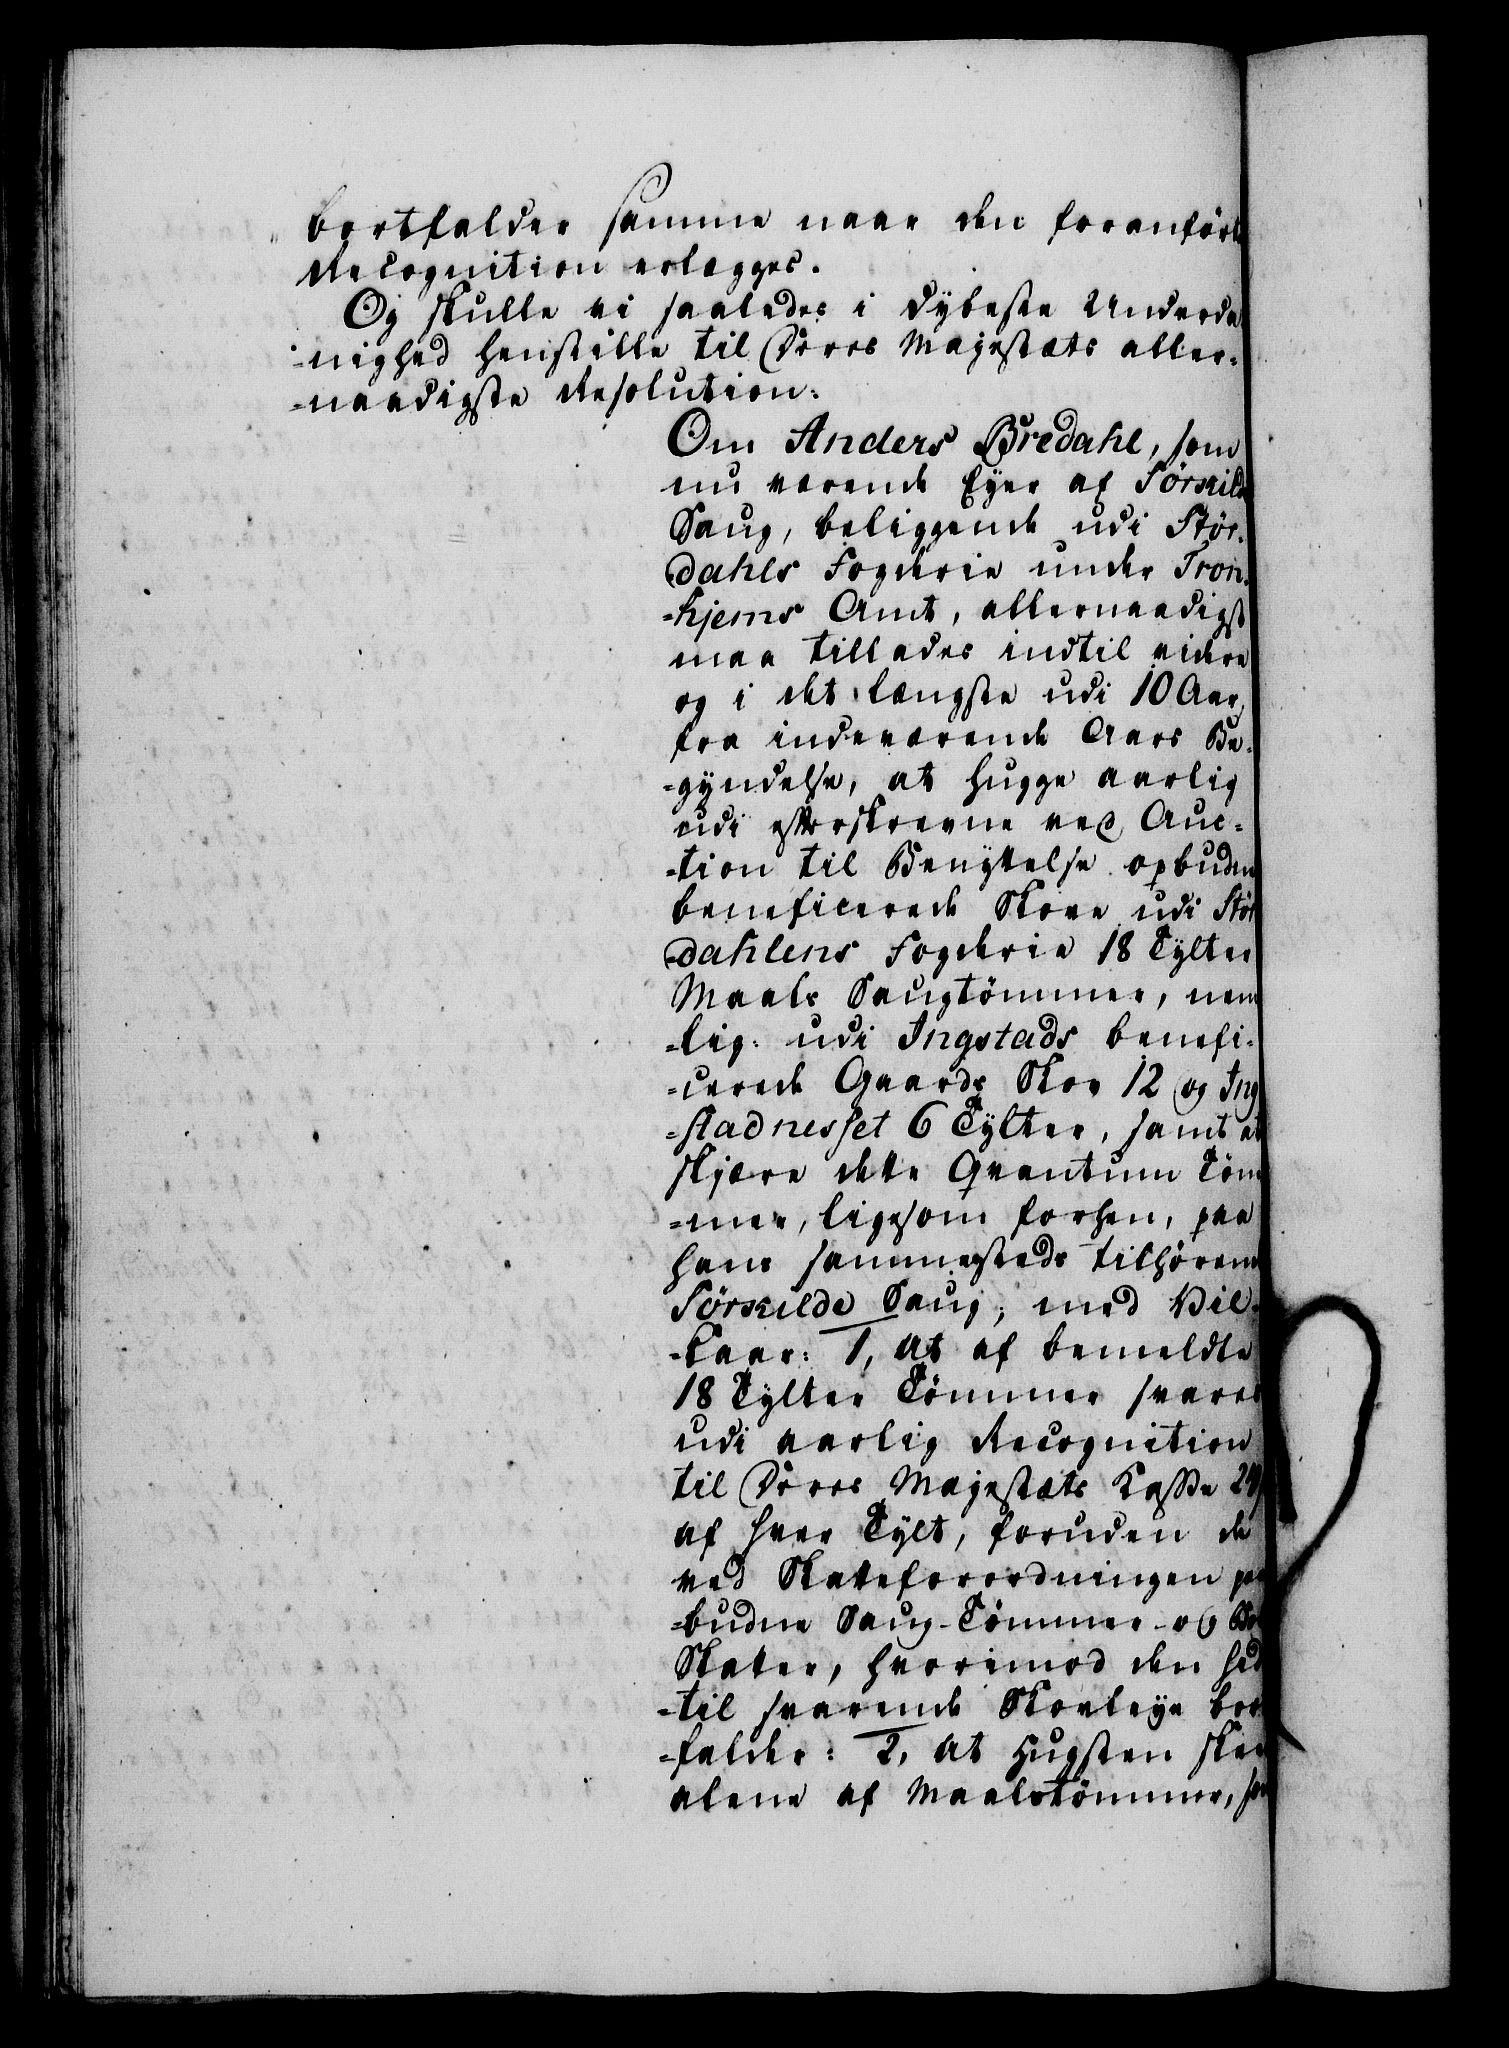 bortfalder samme naar den foranförte
Recognition erlægges.
Og skulle vi saaledes i dybeste Underda
-nighed henstille til Deres Majestæts aller-
-naadigste Resolution:
Om Anders Bredahl, som
nu værende Ejer af Sörskilde
Saug, beliggende udi Stör-
dahls Fogderie under Tron-
-hjems Amt, allernaadigst
maa tillades indtil videre
og i det længste udi 10 Aar,
fra indeværende Aars Be-
-gyndelse, at hugge aarlig
udi efterskrevne ved Auc-
-tion til Benyttelse opbudne
beneficerede Skove udi Stör
dahlens Fogderie 18 Tylter
Maals Saugtömmer, nem
-lig: udi Ingstads benefi-
-cerede Gaards Skov 12 og Ing
-stadnesset 6 Tylter, samt at
skjære dette Qvantum Töm
-mer, ligesom forhen, paa
hans sammesteds tilhörende
Sörskilde Saug, med Vil-
-kaar: 1, At af bemeldte
18 Tylter Tömmer svares
udi aarlig Recognition
til Deres Majestæts Kasse 24
af hver Tylt, foruden de
ved Skatteforordningen paa
-budne Saug-Tömmer- og
Skatter, hvorimod den hid
-til svarende Skovleye bort
-falder: 2, At Hugsten skeer
alene af Maalstömmer, som